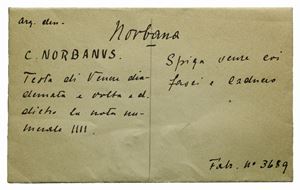 arg. den.
Norbana
C. NORBANVS.
Testa di Venere dia-
demata e volta a d.
dietro la nota nu-
merale IIII.
Spiga verre coi
fasci e caduceo
Fabr. nº 3689